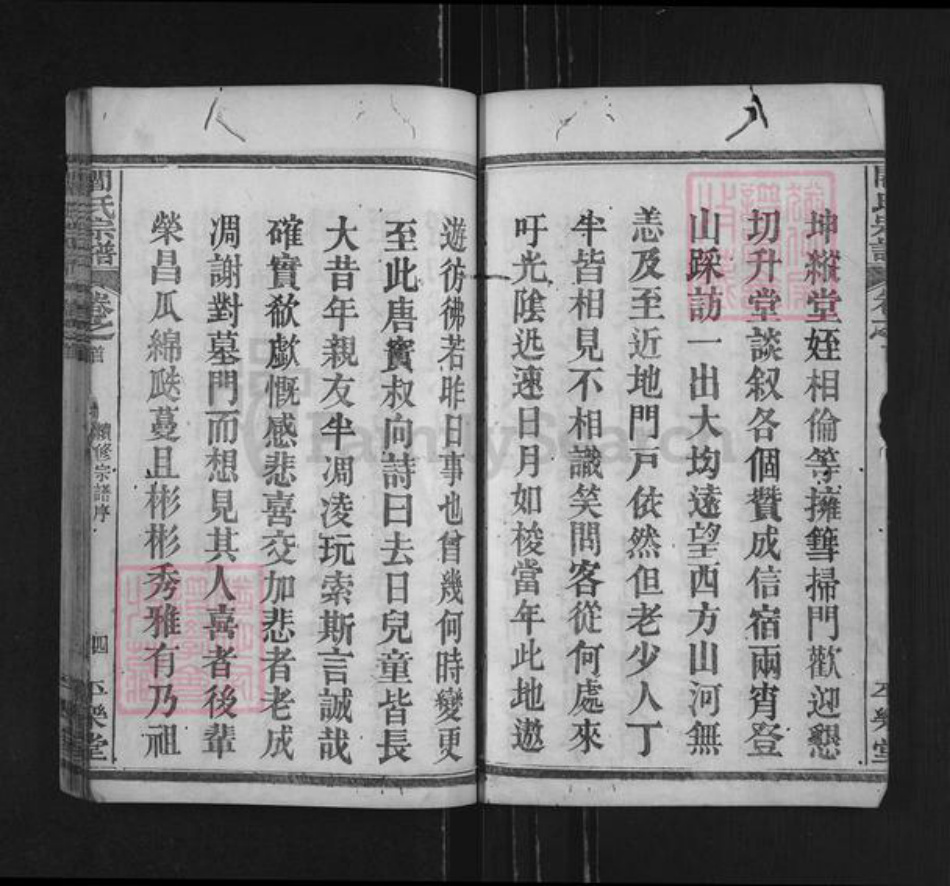 坤縱堂姪相倫等擁篲掃門歡迎懇
切升堂談叙各個贊成信宿兩宵登
山踩訪一出大均遠望西方山河無
恙及至近地門戶依然但老少人丁
半皆相見不相識笑問客從何處來
吁光陰迅速日月如梭當年此地遨
遊彷彿若昨日事也曾幾何時變更
至此唐竇叔向詩曰去日兒童皆長
大昔年親友半凋凌玩索斯言誠哉
確實欷歔慨感悲喜交加悲者老成
凋謝對墓門而想見其人喜者後輩
榮昌瓜綿瓞蔓且彬彬秀雅有乃祖
閻氏宗譜 卷之首 續修宗譜序 四 樂堂
FamilySearch